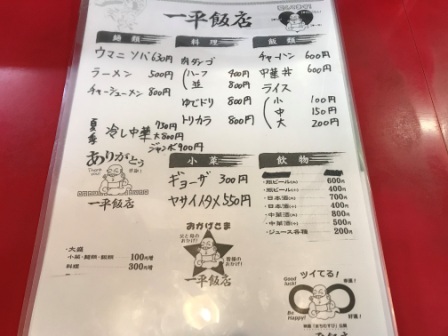 一平飯店
麺類
ウマニソバ 630円
ラーメン 500円
チャーシューメン 800円
夏季 冷し中華 750円
大 800円
ジャンボ 900円
ありがとう
一平飯店
・大盛
小菜・麺類・飯類 100円増
料理 300円増
料理
肉ダンゴ
ハーフ 400円
並 800円
ゆでドリ 800円
トリカラ 800円
小菜
ギョーザ 300円
ヤサイイタメ 550円
おかげさま
一平飯店
飯類
チャーハン 600円
中華丼 600円
ライス
小 100円
中 150円
大 200円
飲物
600円
・瓶ビール 400円
・日本酒 700円
・日本酒 400円
・中華酒 800円
・中華酒 500円
・ジュース各種 200円
ツイてる!
Good luck!
Be Happy?